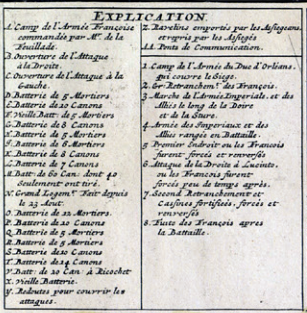 EXPLICATION.
A. Camp de l'Armée Françoise
commandée par Mr. de la
Feuillade.
B. Ouverture de l'Attaque
de la Droite.
C. Ouverture de l'Attaque à la
Gauche.
D. Batterie de 5 Mortiers
E. Batterie de 20 Canons
F. Vieille Batt. de 5 Mortiers
G. Batterie de 8 Canons
H. Batterie de 5 Mortiers
I. Batterie de 8 Mortiers
K. Batterie de 8 Canons
L. Batterie de 7 Canons
M. Batt. de 60 Can. dont 40
seulement ont tiré.
N. Grand Logemt. Fait depuis
le 23 Aout.
O. Batterie de 12 Mortiers.
P. Batterie de 10 Canons
Q. Batterie de 5 Mortiers
R. Batterie de 5 Mortiers
S. Batterie de 10 Canons
T. Batterie de 14 Canons
V. Batt. de 20 Can. à Ricochet
X. Vieille Batterie.
Y. Redoutes pour couvrir les
attaques.
Z. Ravelins emportés par les Assiegeans
et repris par les Assiegés
AA. Ponts de Communication.
1. Camp de l'Armée du Duc d'Orleans,
qui couvre le Siege.
2. 1er Retranchemt. des François
3. Marche de l'Armée Imperiale, et des
Alliés le long de la Doire
et de la Sture.
4. Armée des Imperiaux et des
Alliés rangée en Battaille.
5. Premier Endroit ou les François
furent forcés et renversés
6. Attaque de la Droite à Lucinto,
ou les François furent
forcés peu de temps après.
7. Second Retranchement et
Cassines fortifiées, forcés et
renversés
8. Fuite des François apres
la Battaille.